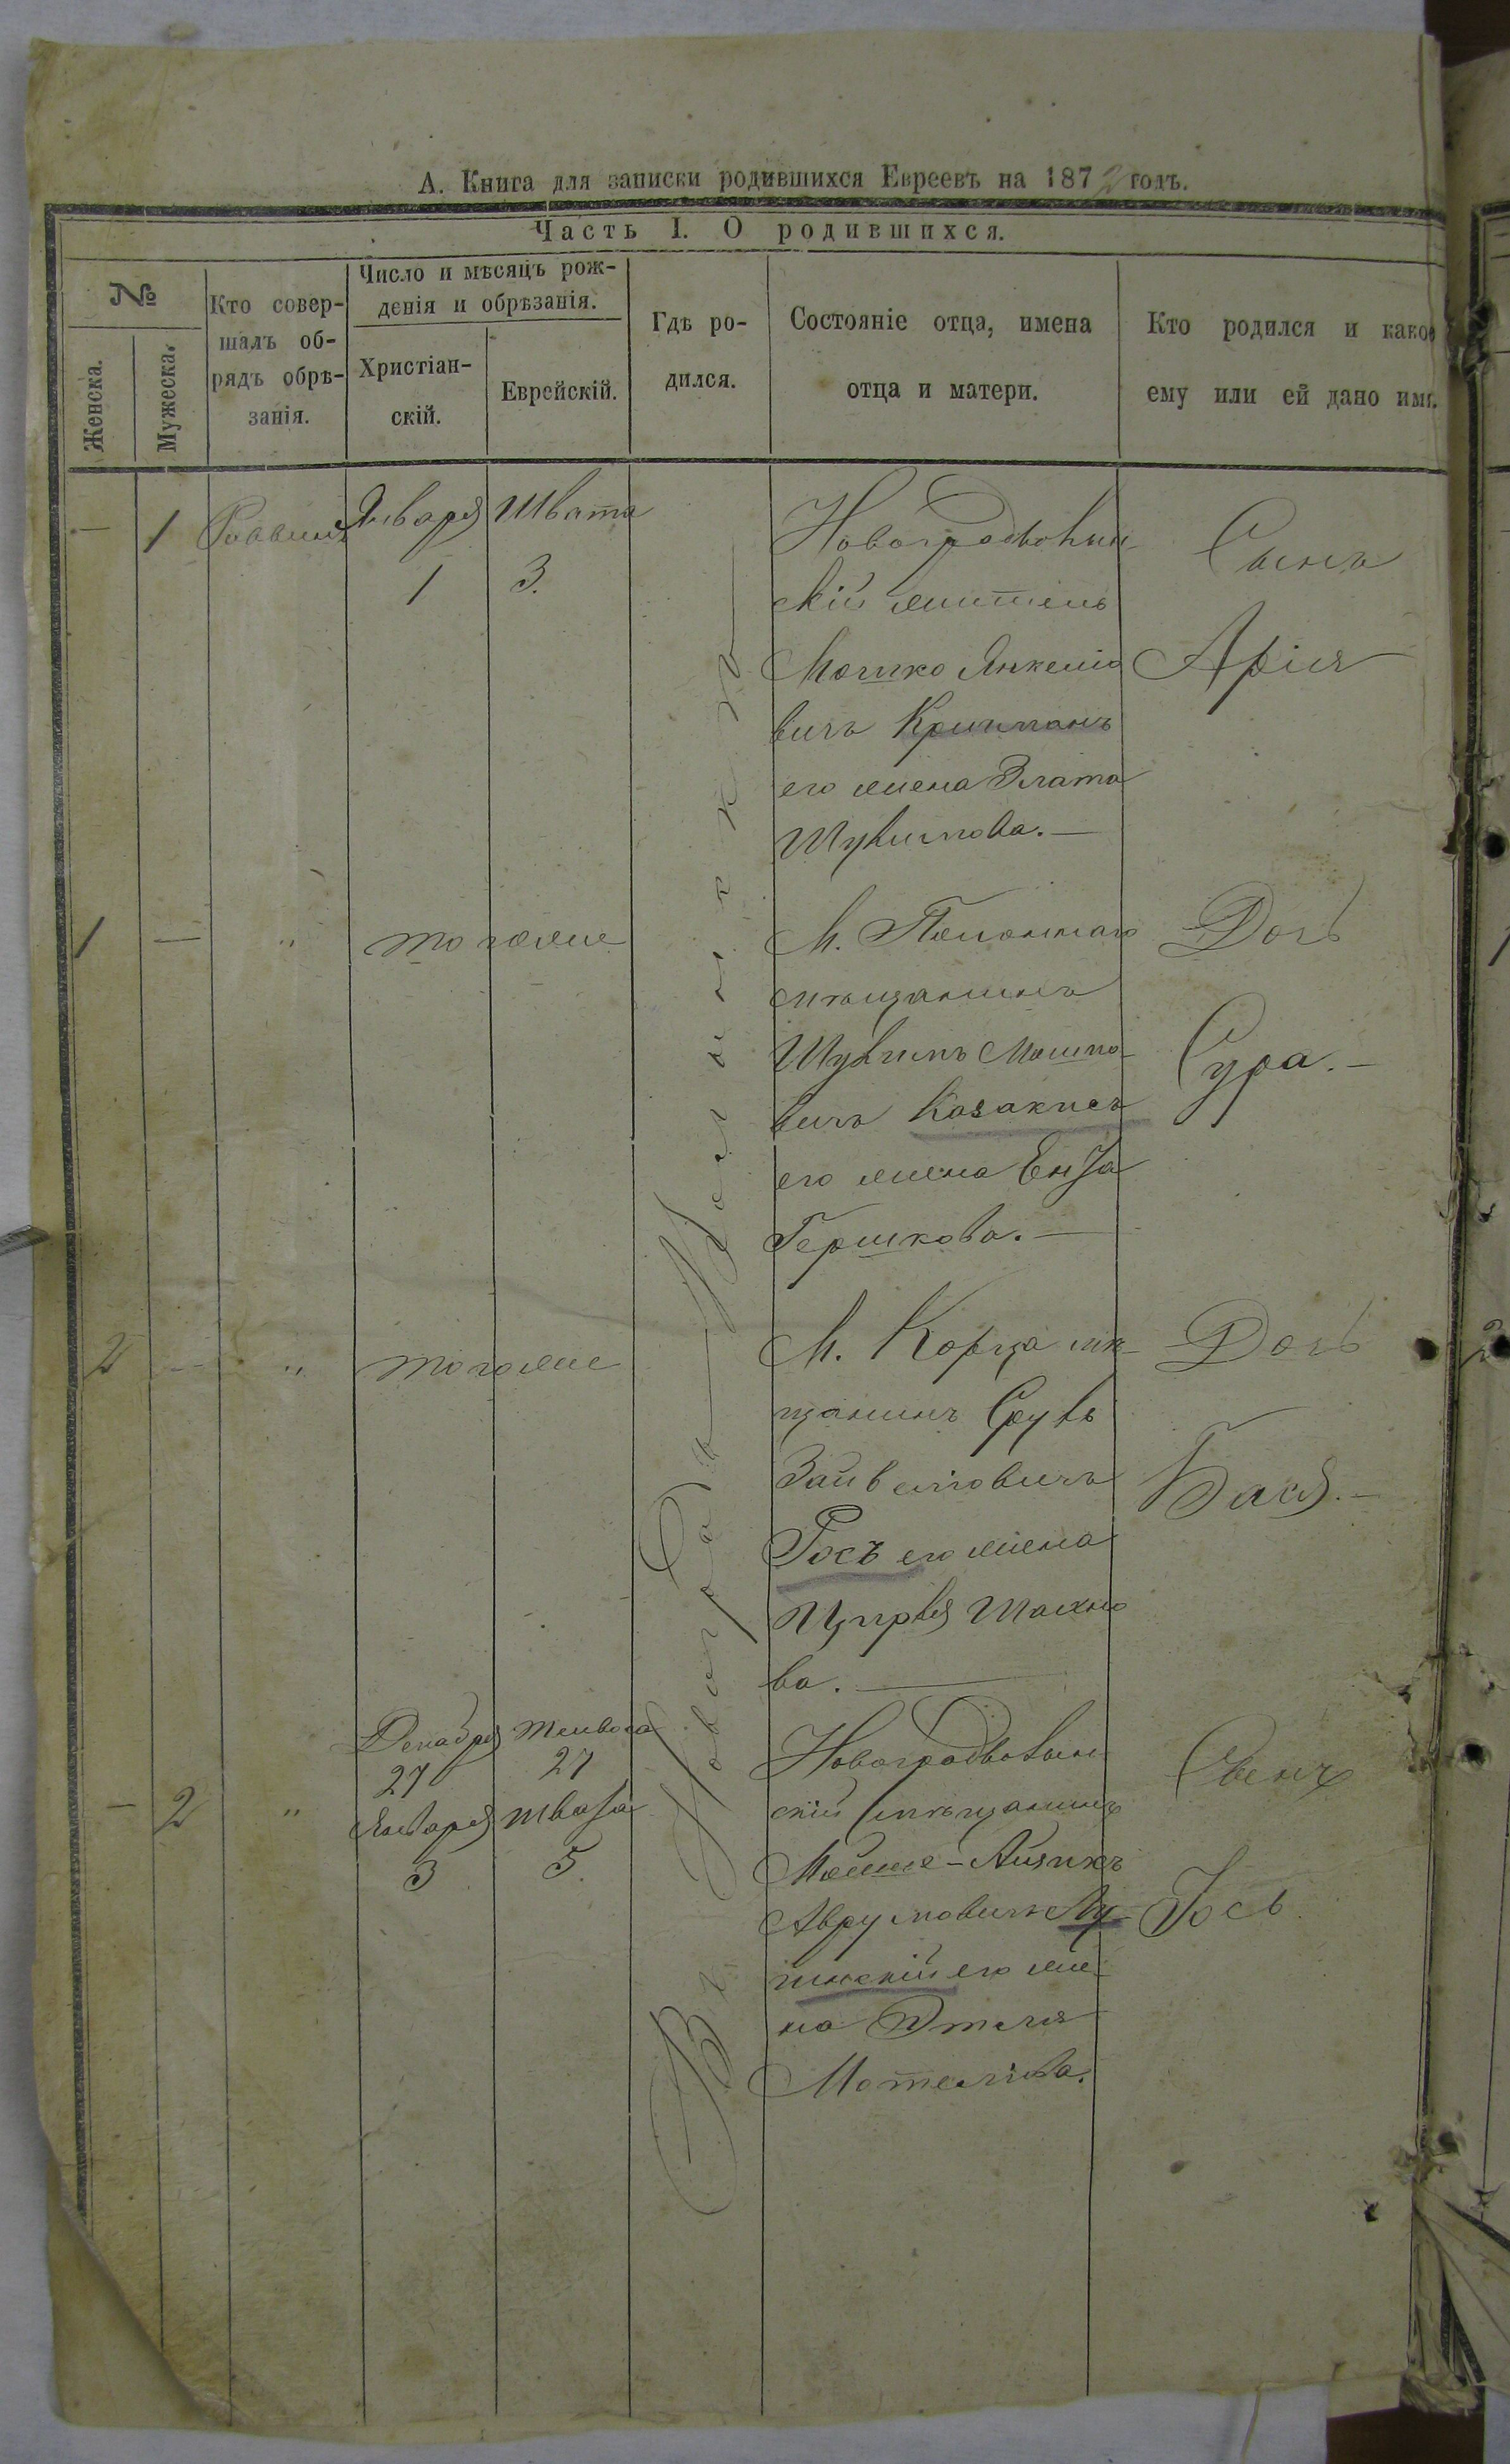 А. Книга для записки родившихся Евреевъ на 1872 годъ.
Часть I. О родившихся.
№
Женска.
Мужеска.
Кто совер-
шалъ об-
рядъ обрѣ-
занія.
Число и мѣсяцъ рож-
денія и обрѣзанія.
Христіан-
скій.
Еврейскій.
Гдѣ ро-
дился.
Состояніе отца, имена
отца и матери.
Кто родился и какое
ему или ей дано имя.
— 1 Раввинъ Января Швата
1 3.
Въ Новоградѣ-Волынскѣ
Новоградволын-
скій житель
Мошко Янкеліо
вичъ
его жена Злата
Шулимова. —
Сынъ
Арія
1 — " того же
М. Полоннаго
мѣщанинъ
Шулимъ Мошко-
вичъ Казакисъ
его жена Ента
Гершкова. —
Дочь
Сура. —
2 — " того же
М. Корца мѣ-
щанинъ Сруль
Зайвеліовичъ
Росъ его жена
Ципра
ва. —
Дочь
Бася. —
Декабря Тейвеса
27 27
— 2 " Января Швата
3 5.
Новоградволын-
скій мѣщанинъ
Мойше-Айзикъ
Аврумовичъ Лу-
гинскій его же-
на Этля
Мотеліова.
Сынъ
Іось